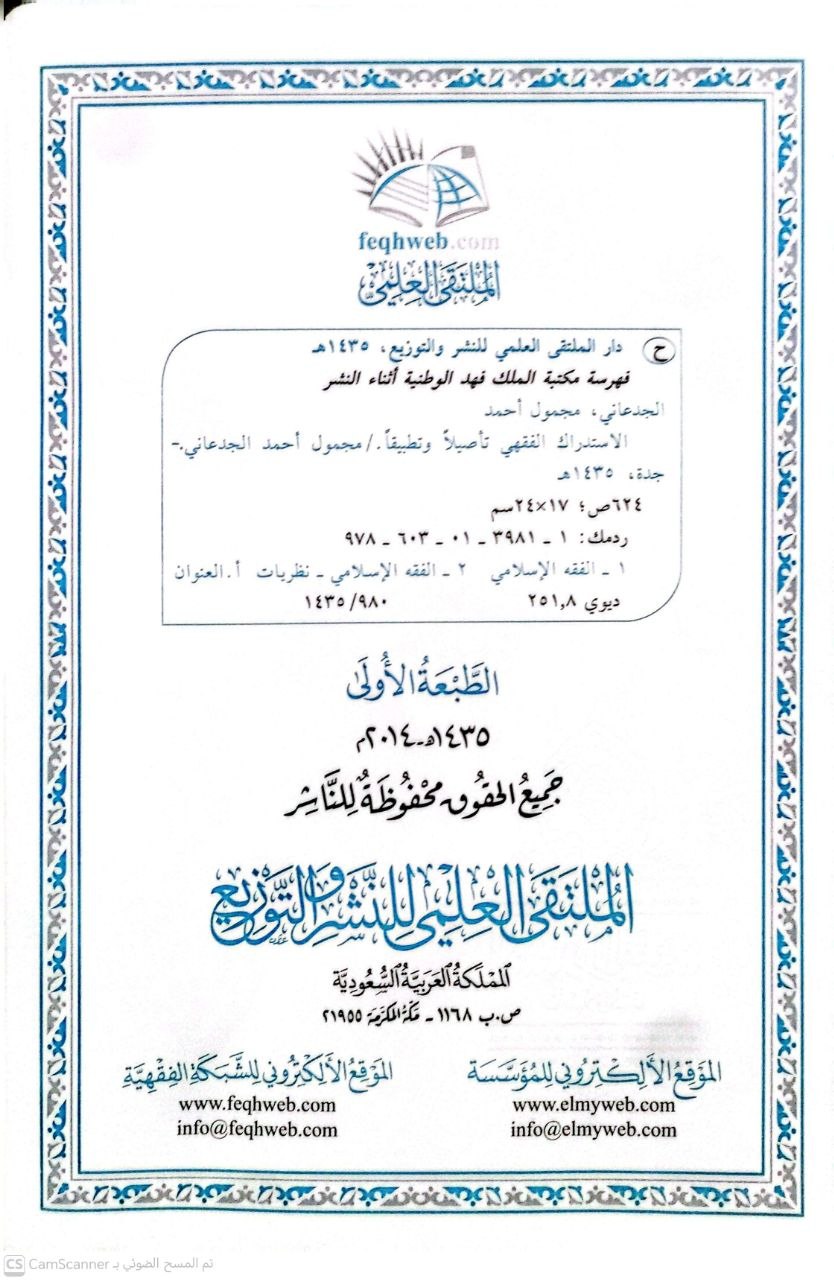 feqhweb.com
المُلتَقَى العِلمِيّ
ح دار الملتقى العلمي للنشر والتوزيع، ١٤٣٥هـ
فهرسة مكتبة الملك فهد الوطنية أثناء النشر
الجدعاني، مجمول أحمد
الاستدراك الفقهي تأصيلاً وتطبيقاً./ مجمول أحمد الجدعاني.-
جدة، ١٤٣٥هـ
٦٢٤ص؛ ١٧×٢٤سم
ردمك: ١ ـ ٣٩٨١ ـ ٠١ ـ ٦٠٣ ـ ٩٧٨
١ ـ الفقه الإسلامي ٢ ـ الفقه الإسلامي ـ نظريات أ.العنوان
ديوي ٢٥١,٨ ١٤٣٥/٩٨٠
الطَّبْعَةُ الأُولَىٰ
١٤٣٥هـ-٢٠١٤م
جَمِيعُ الحُقُوقِ مَحْفُوظَةٌ لِلنَّاشِرِ
المُلتَقَى العِلمِي لِلنَّشْرِ وَالتَّوْزِيعِ
المَمْلَكَةُ العَرَبِيَّةُ السُّعُودِيَّة
ص.ب ١١٦٨ - مَكَّةُ المُكَرَّمَة ٢١٩٥٥
المَوقِعُ الأَلِكْتِرُونِي لِلمُؤَسَّسَة
www.elmyweb.com
info@elmyweb.com
المَوقِعُ الأَلِكْتِرُونِي لِلشَّبَكَةِ الفِقْهِيَّة
www.feqhweb.com
info@feqhweb.com
CS CamScanner تم المسح الضوئي بـ